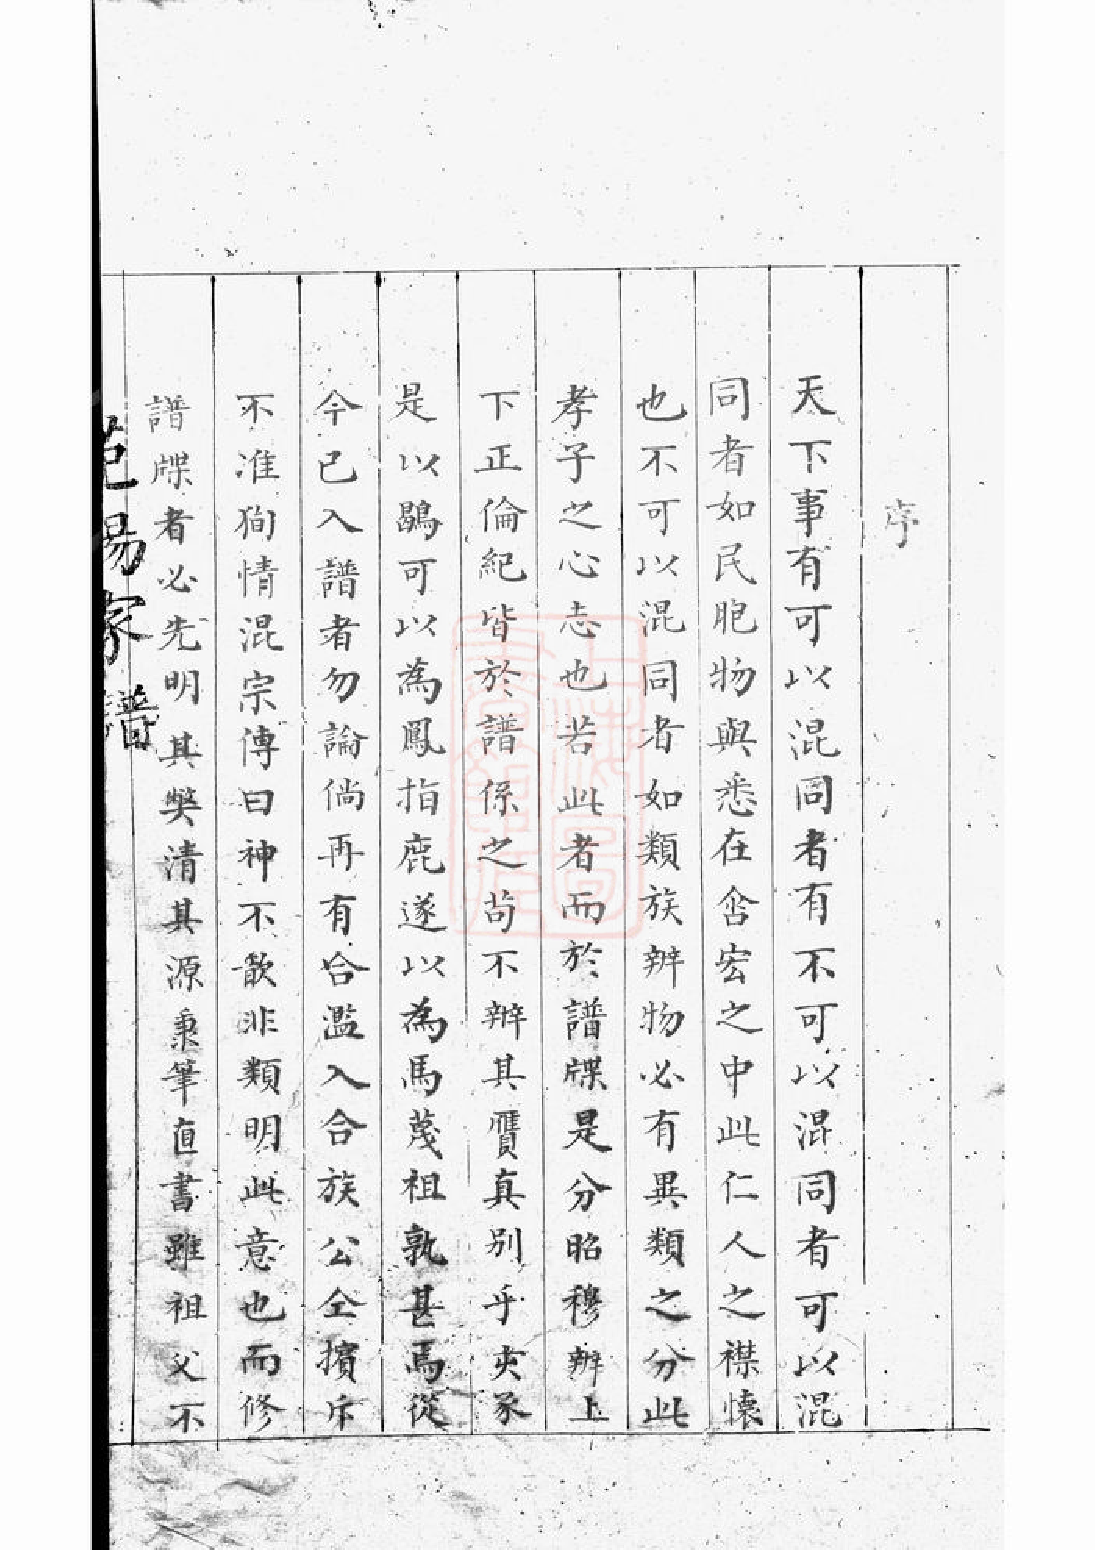 序
天下事有可以混同者有不可以混同者可以混
同者如民胞物與悉在含宏之中此仁人之襟懷
也不可以混同者如類族辨物必有異類之分此
孝子之心志也若此者而於譜牒是分昭穆辨上
下正倫紀皆於譜係之苟不辨其贗真別乎夾豕
是以鷃可以為鳳指鹿遂以為馬蔑祖孰甚焉從
今已入譜者勿論倘再有合濫入合族公仝擯斥
不准狥情混宗傳曰神不歆非類明此意也而修
譜牒者必先明其獘清其源秉筆直書雖祖父不
范陽家譜
上海圖書館藏